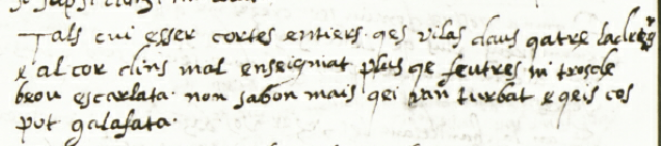 Tals cui esser cortes entiers. qes vilas daus qatre ladres
e al cor dins mal enseigniat plus qe feutres ni troscle
beou escarlata. non sabon mais qei nan turbat e qeis cos
pot galafata.